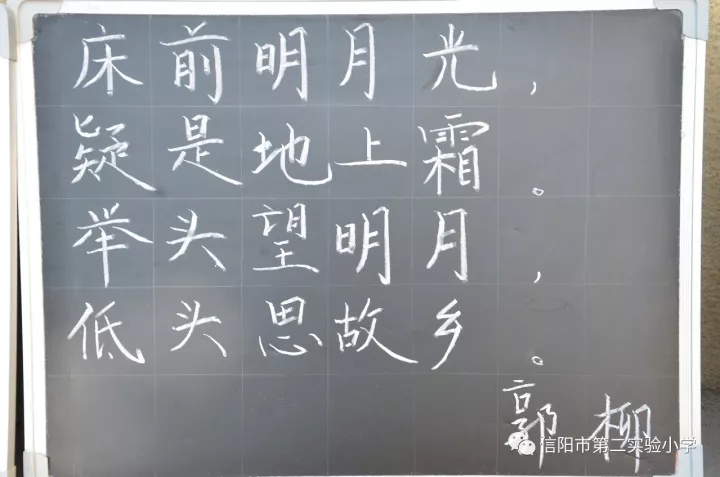 床前明月光，
疑是地上霜。
举头望明月，
低头思故乡。
郭柳
信阳市第二实验小学